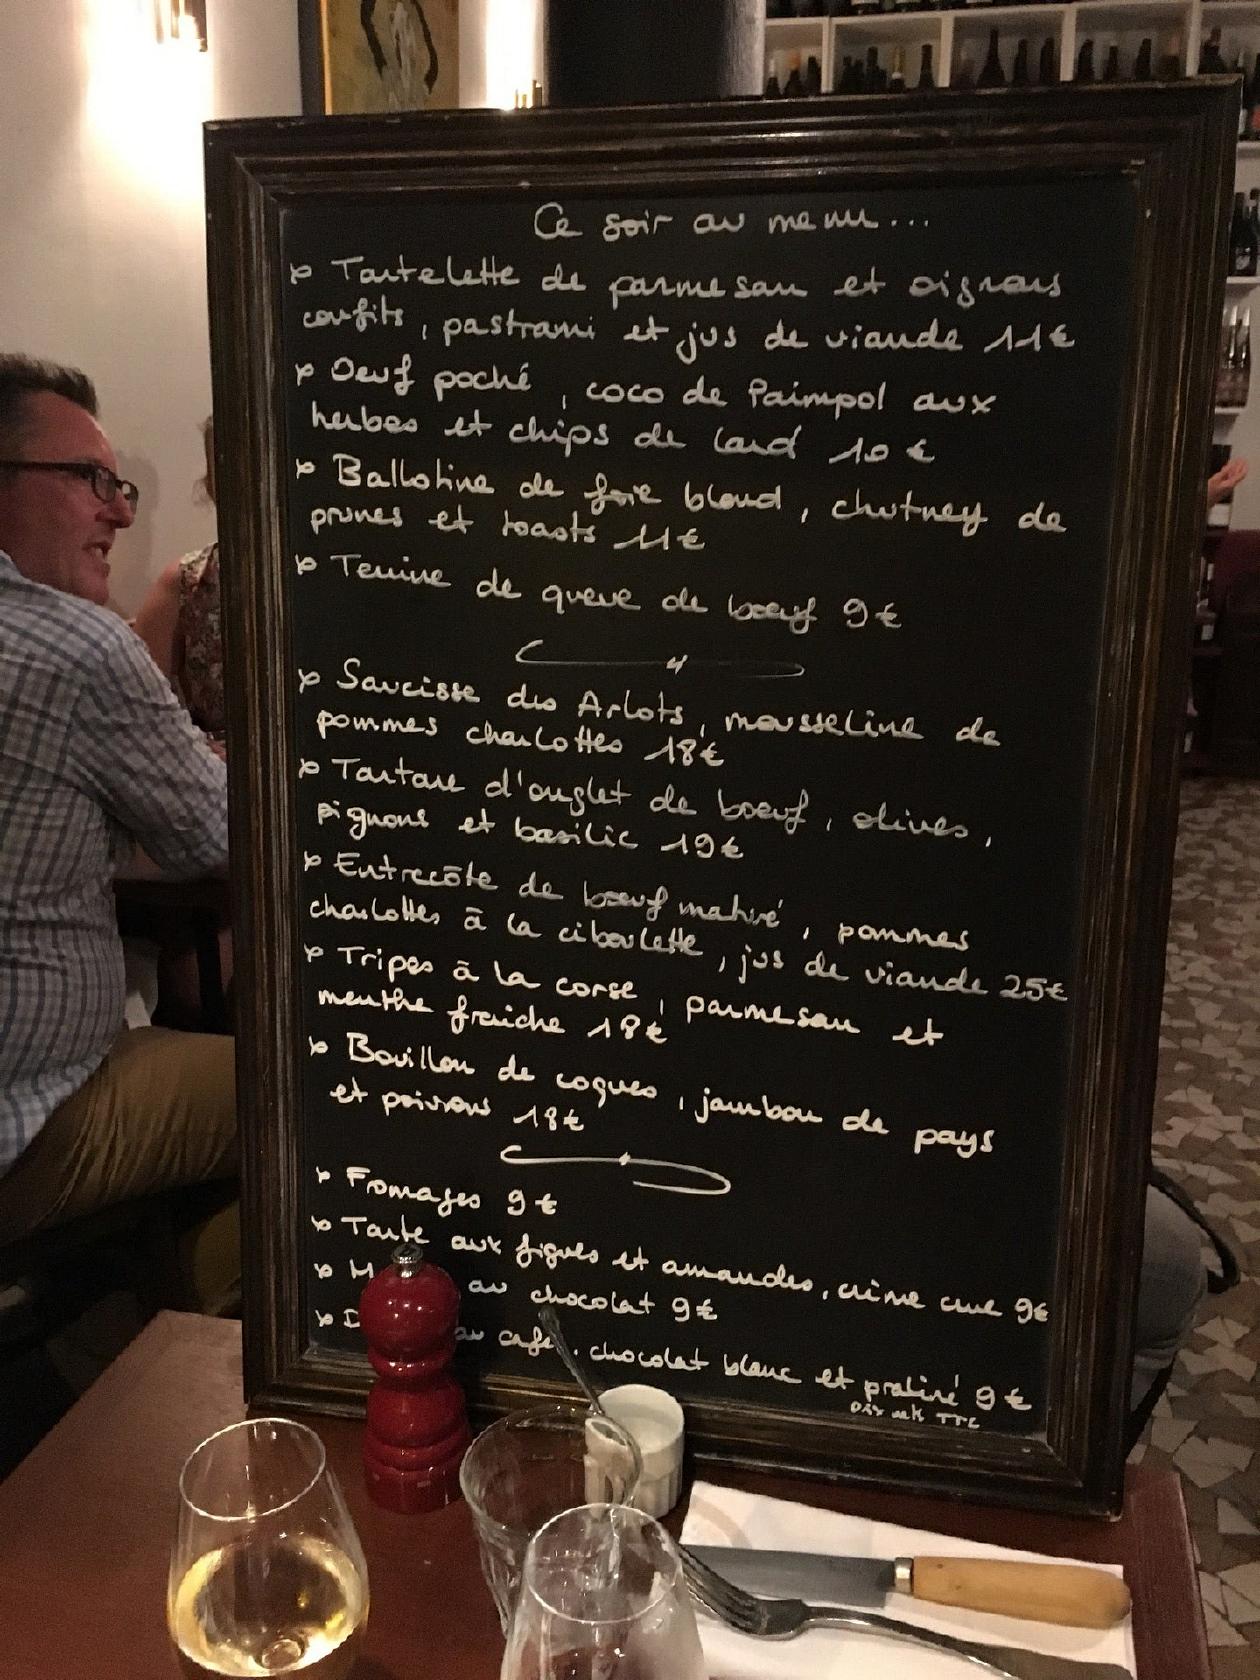 Ce soir au menu...
Tartelette de parmesan et oignons
confits, pastrami et jus de viande 11€
Oeuf poché, coco de Paimpol aux
herbes et chips de lard 10€
Ballotine de foie blond, chutney de
prunes et toasts 11€
Terrine de queue de boeuf 9€
Saucisse des Arlots, mousseline de
pommes charlottes 18€
Tartare d'onglet de boeuf, olives,
pignons et basilic 19€
Entrecôte de boeuf maturé, pommes
charlottes à la ciboulette, jus de viande 25€
Tripes à la corse, parmesan et
menthe fraiche 18€
Bouillon de coques, jambon de pays
et poivrons 18€
Fromages 9€
Tarte aux figues et amandes, crème crue 9€
au chocolat 9€
au café, chocolat blanc et praliné 9€
Prix nets TTC